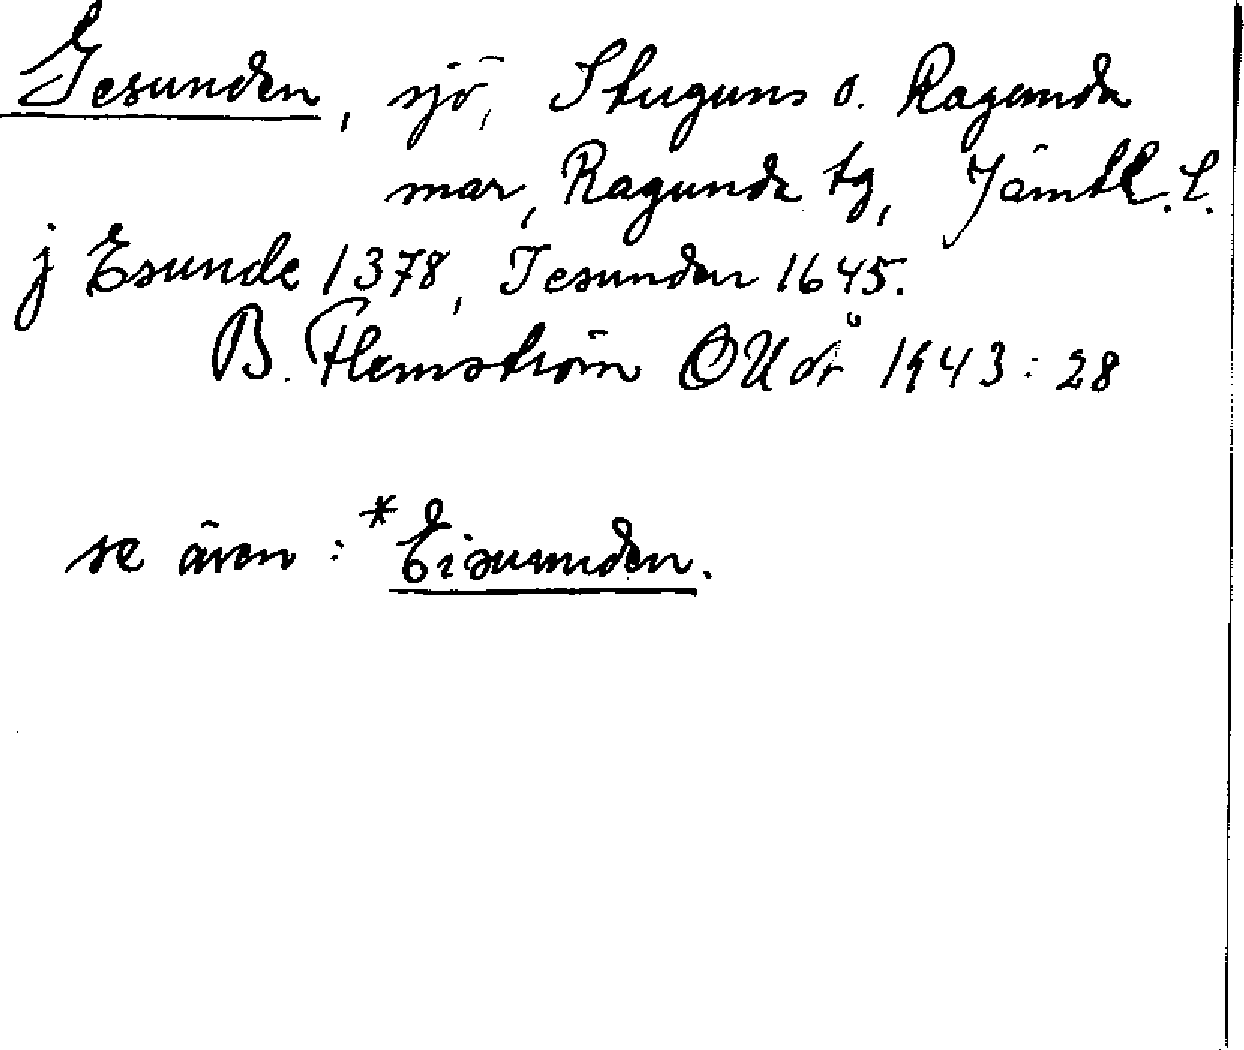 Gesunden, sjö, Stuguns o. Ragunda
snar, Ragunda tg, Jämtl. L.
j Esunde 1378, Jesunden 1645.
B. Flemström OUÅ 1943:28
se även: *Eisunden.